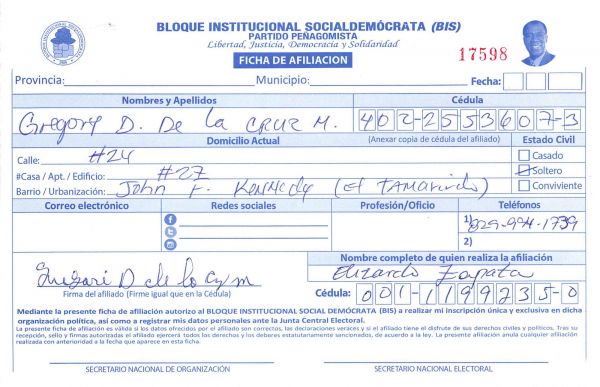 BLOQUE INSTITUCIONAL SOCIALDEMÓCRATA (BIS)
PARTIDO PEÑAGOMISTA
Libertad, Justicia, Democracia y Solidaridad
FICHA DE AFILIACION
17598
Provincia: Municipio: Fecha:
Nombres y Apellidos Cédula
Gregory D. De la CRUZ M. 402-2553607-3
Domicilio Actual (Anexar copia de cédula del afiliado) Estado Civil
Calle: #24 Casado
#Casa / Apt. / Edificio: #27 Soltero
Barrio / Urbanización: John F. Kennedy (El TAMARINDO) Conviviente
Correo electrónico Redes sociales Profesión/Oficio Teléfonos
1) 829-994-1739
2)
Nombre completo de quien realiza la afiliación
Elizardo Zapata
Firma del afiliado (Firme igual que en la Cédula)
Cédula: 001-1199235-0
Mediante la presente ficha de afiliación autorizo al BLOQUE INSTITUCIONAL SOCIAL DEMÓCRATA (BIS) a realizar mi inscripción única y exclusiva en dicha
organización política, así como a registrar mis datos personales ante la Junta Central Electoral.
La presente ficha de afiliación es válida si los datos ofrecidos por el afiliado son correctos, las declaraciones veraces y si el afiliado tiene el disfrute de sus derechos civiles y políticos. Tras su
recepción, sello y firmas autorizadas el afiliado ejercerá todos los derechos y los deberes estatutariamente sancionados, de acuerdo a la ley. La presente afiliación anula cualquier afiliación
realizada con anterioridad a la fecha que aparece en esta ficha.
SECRETARIO NACIONAL DE ORGANIZACIÓN SECRETARIO NACIONAL ELECTORAL